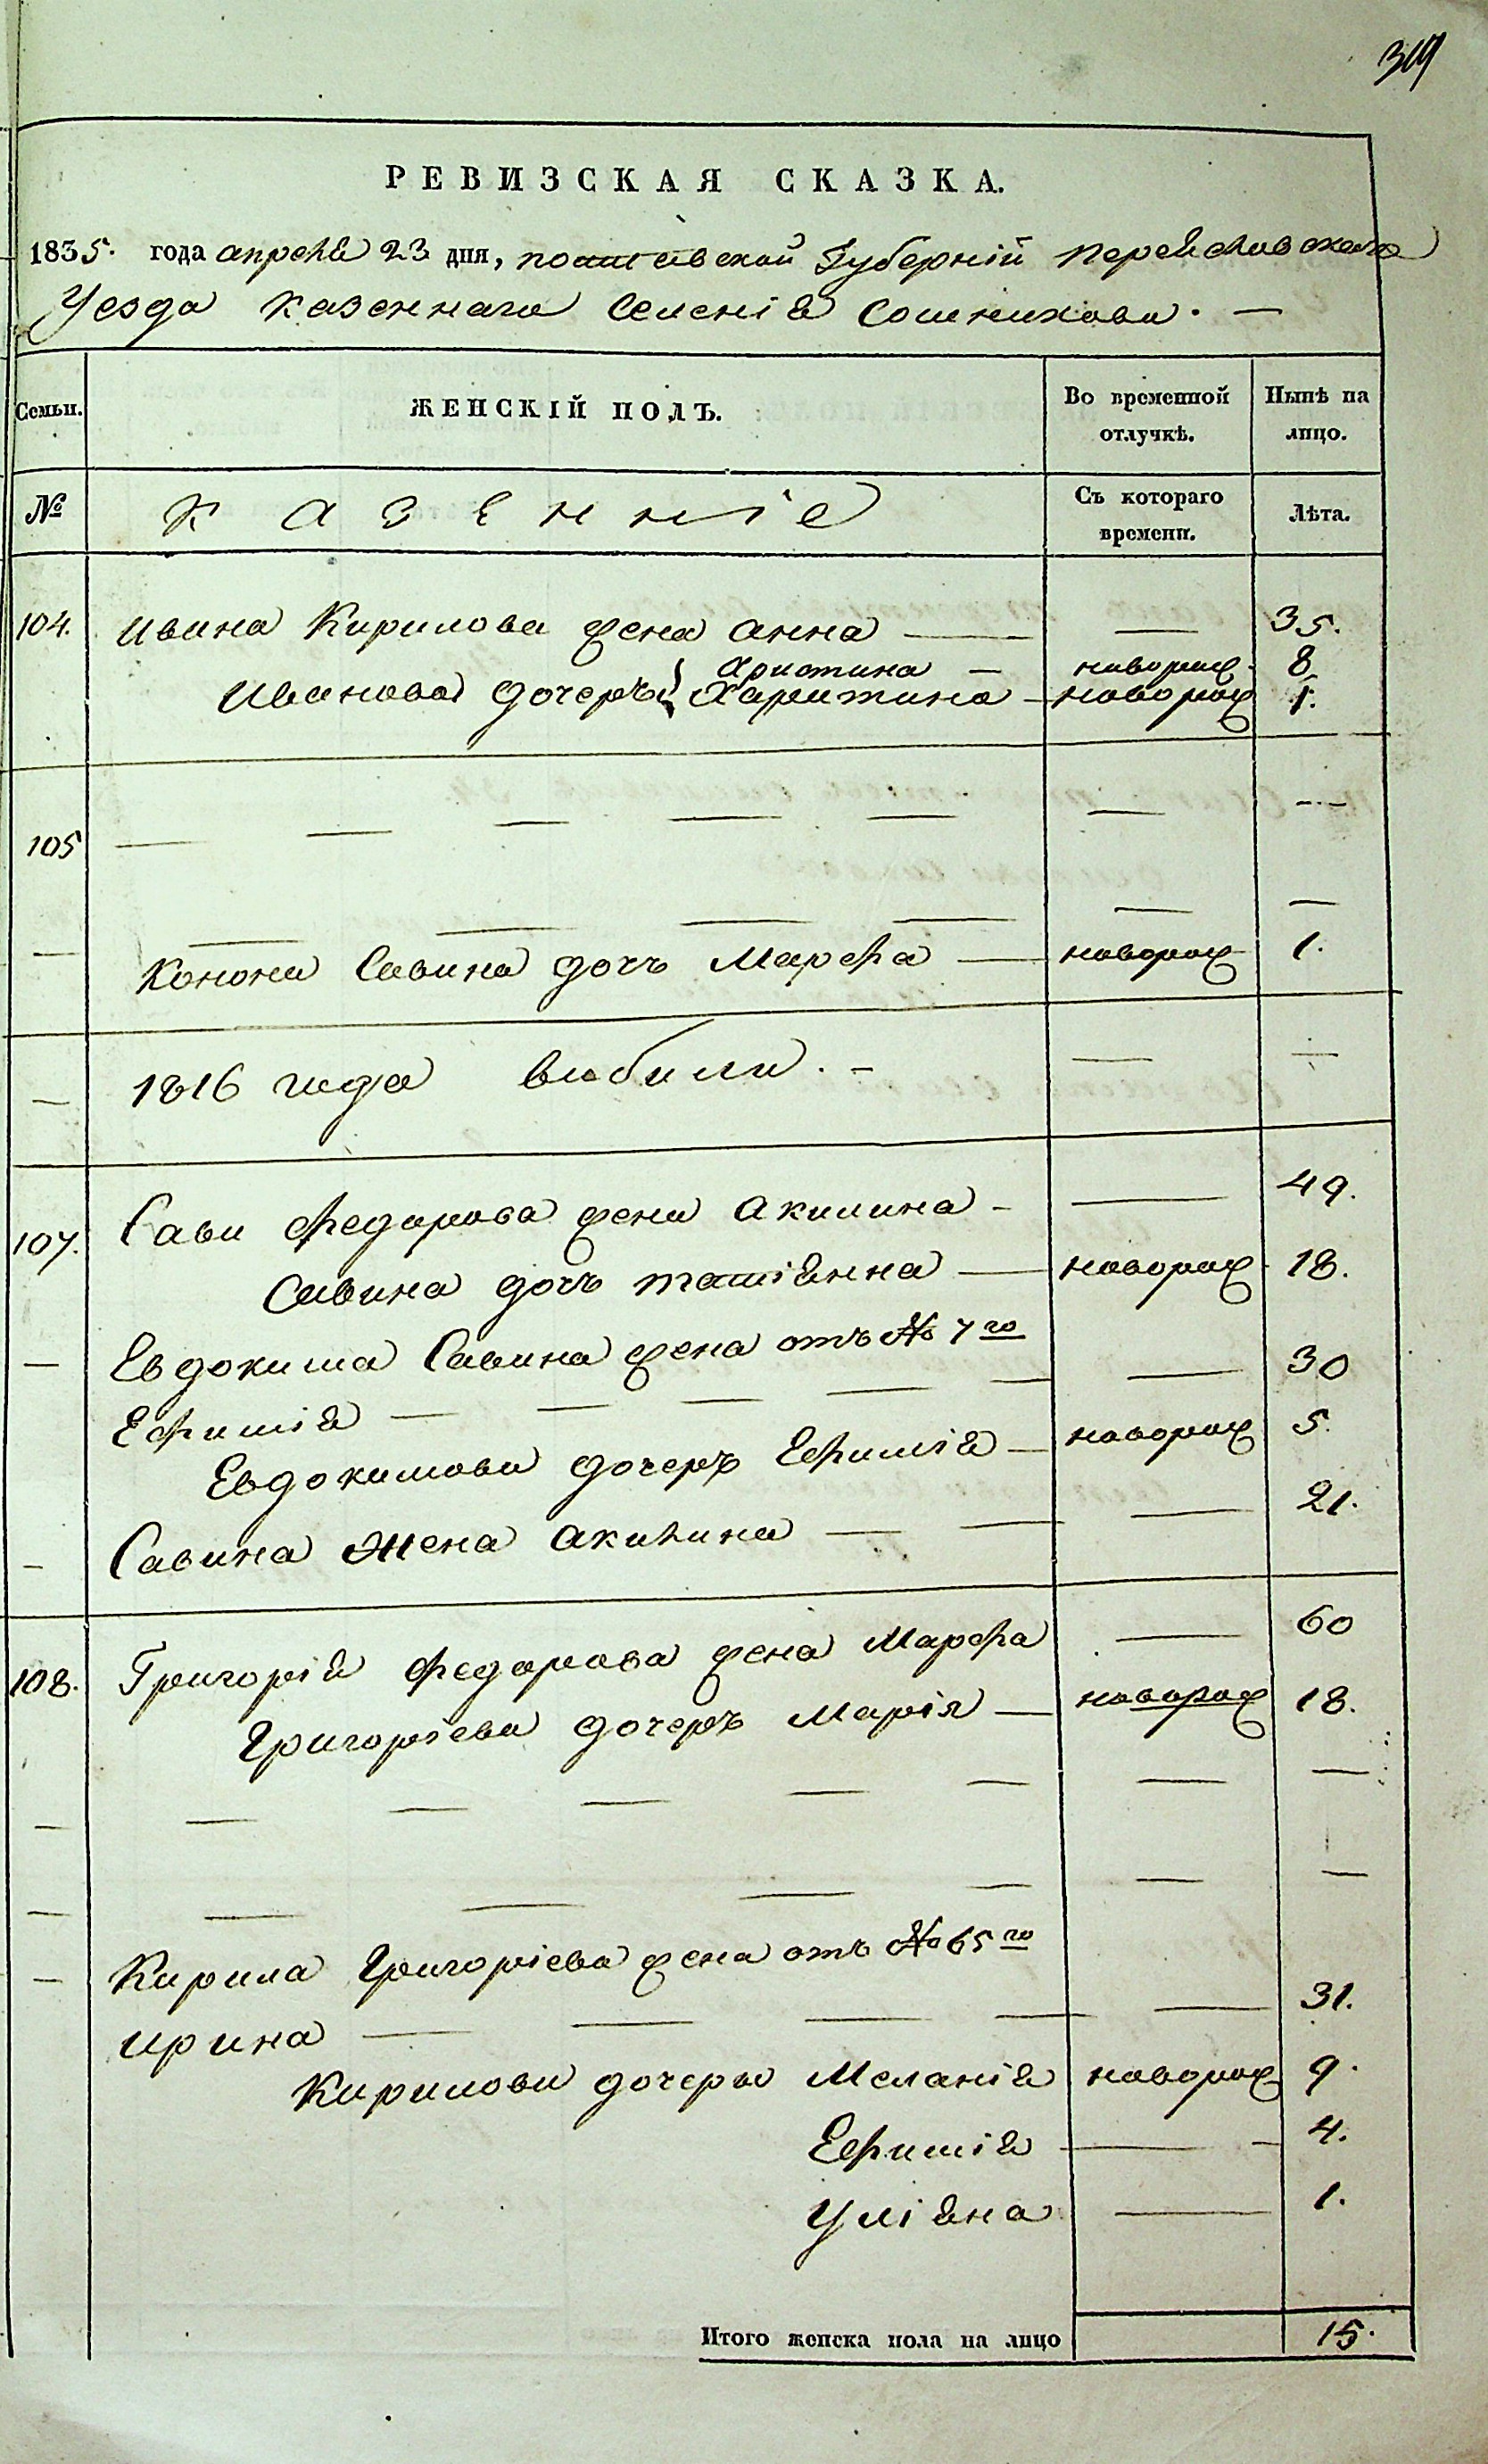 319
РЕВИЗСКАЯ СКАЗКА.
1835. года апреля 23 дня, полтавской Губерніи переяславскаго
Уезда казеннаго Селенія Сошникова. —
Семьи. ЖЕНСКІЙ ПОЛЪ. Во временной отлучкѣ. Нынѣ на лицо.
№ Казенніе Съ котораго времени. Лѣта.
104. Ивана Кирилова жена Анна — — 35.
Христина — новорож. 8
Иванова дочеръи Харитина — новорож 1.
105 — — — — — — —
— — — — — —
— Конона Савина дочъ Марфа — новорож 1.
— 1816 года выбили. — — —
107. Сави Федорова жена Акилина — — 49.
Савина дочъ татіянна — новорож 18.
— Евдокима Савина жена отъ № 7го
Ефимія — — — — — — 30
Евдокимова дочеръ Ефимія — новорож 5.
— Савина жена Акилина — — — 21.
108. Григорія Федорова жена Марфа — 60
Григоріева дочеръ Марія — новорож 18.
— — — — — — — —
— — — — — — —
— Кирила Григоріева жена отъ № 65го
Ирина — — — — — 31.
Кирилови дочеры Меланія новорож 9.
Ефимія — — 4.
Уліяна — 1.
Итого женска пола на лицо 15.